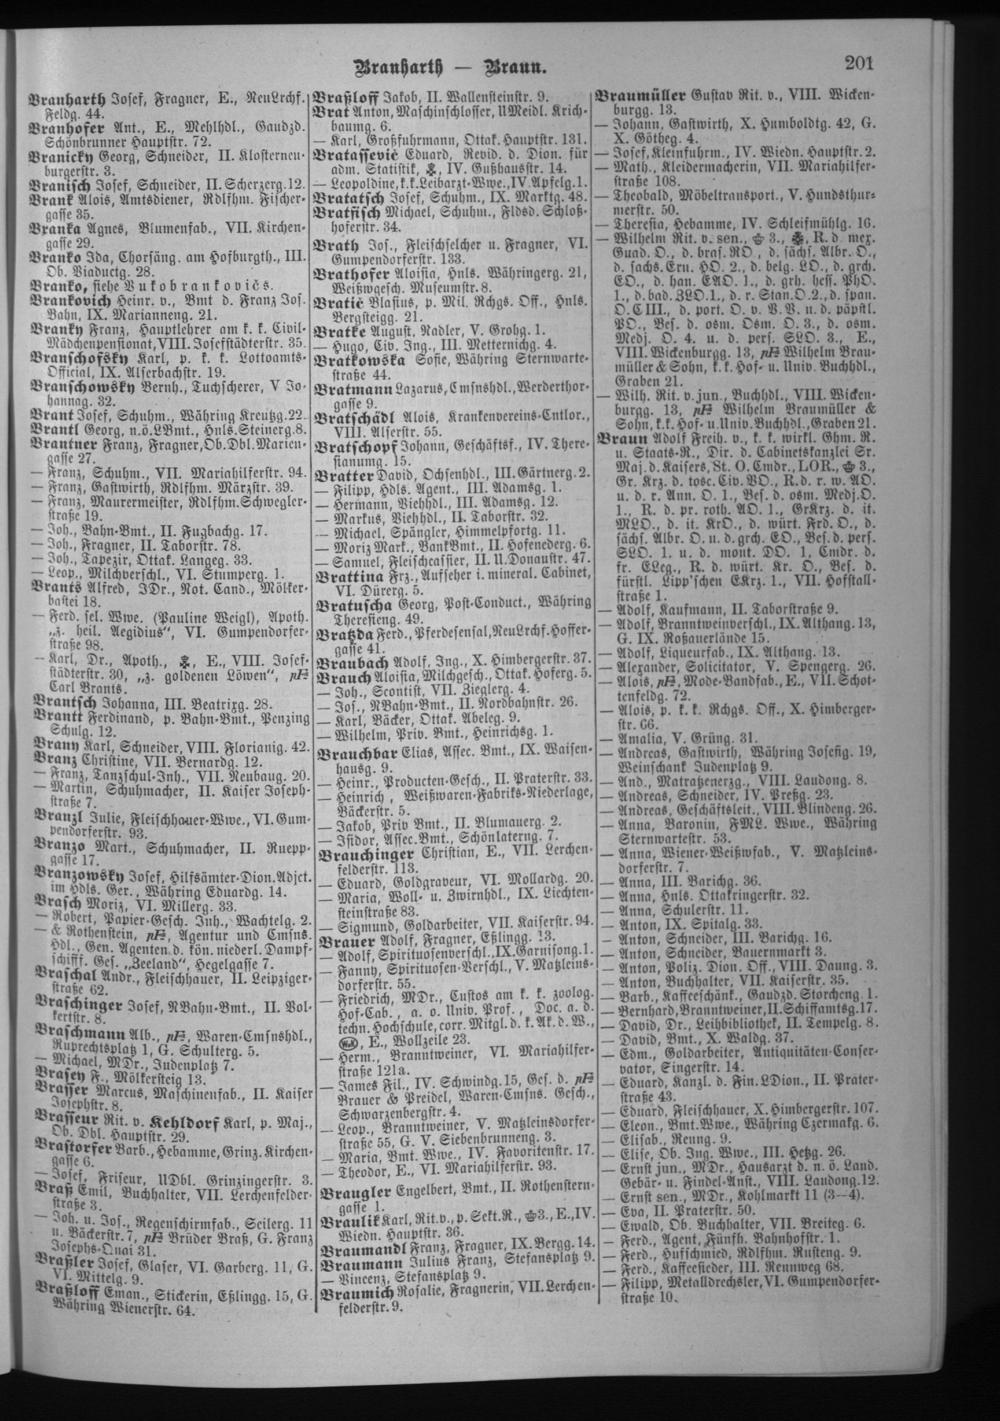 Branharth — Braun.
201
Branharth Josef, Fragner, E., NeuLrchf.
Feldg. 44.
Branhofer Ant., E., Mehlhdl., Gaudzd.
Schönbrunner Hauptstr. 72.
Branicky Georg, Schneider, II. Klosterneu-
burgerstr. 3.
Branisch Josef, Schneider, II. Scherzerg. 12.
Brank Alois, Amtsdiener, Rdlfhm. Fischer-
gasse 35.
Branka Agnes, Blumenfab., VII. Kirchen-
gasse 29.
Branko Ida, Chorsäng. am Hofburgth., III.
Ob. Viaductg. 28.
Branko, siehe Vukobrankovičs.
Brankovich Heinr. v., Bmt d. Franz Jos.
Bahn, IX. Marianneng. 21.
Branky Franz, Hauptlehrer am k. k. Civil-
Mädchenpensionat, VIII. Josefstädterstr. 35.
Branschofsky Karl, p. k. k. Lottoamts-
Official, IX. Alserbachstr. 19.
Branschowsky Bernh., Tuchscherer, V Jo-
hannag. 32.
Brant Josef, Schuhm., Währing Kreutzg. 22.
Brantl Georg, n.ö. LBmt., Hnls. Steinerg. 8.
Brantner Franz, Fragner, Ob. Dbl. Marien-
gasse 27.
— Franz, Schuhm., VII. Mariahilferstr. 94.
— Franz, Gastwirth, Rdlfhm. Märzstr. 39.
— Franz, Maurermeister, Rdlfhm. Schwegler-
straße 19.
— Joh., Bahn-Bmt., II. Fugbachg. 17.
— Joh., Fragner, II. Taborstr. 78.
— Joh., Tapezir, Ottak. Langeg. 33.
— Leop., Milchverschl., VI. Stumperg. 1.
Brants Alfred, JDr., Not. Cand., Mölker-
bastei 18.
— Ferd. sel. Wwe. (Pauline Weigl), Apoth.
„z. heil. Aegidius“, VI. Gumpendorfer-
straße 98.
— Karl, Dr., Apoth., E., VIII. Josef-
städterstr. 30, „z. goldenen Löwen“,
Carl Brants.
Brantsch Johanna, III. Beatrixg. 28.
Brantt Ferdinand, p. Bahn-Bmt., Penzing
Schulg. 12.
Brany Karl, Schneider, VIII. Florianig. 42.
Branz Christine, VII. Bernardg. 12.
— Franz, Tanzschul-Inh., VII. Neubaug. 20.
— Martin, Schuhmacher, II. Kaiser Joseph-
straße 7.
Branzl Julie, Fleischhauer-Wwe., VI. Gum-
pendorferstr. 93.
Branzo Mart., Schuhmacher, II. Ruepp-
gasse 17.
Branzowsky Josef, Hilfsämter-Dion. Adjct.
im Hdls. Ger., Währing Eduardg. 14.
Brasch Moriz, VI. Millerg. 33.
— Robert, Papier-Gesch. Inh., Wachtelg. 2.
— & Rothenstein, Agentur und Cmsns.
Hdl., Gen. Agenten d. kön. niederl. Dampf-
schifff. Ges. „Zeeland“, Hegelgasse 7.
Braschal Andr., Fleischhauer, II. Leipziger-
straße 62.
Braschinger Josef, NBahn-Bmt., II. Vol-
kertstr. 8.
Braschmann Alb., Waren-Cmsnshdl.,
Ruprechtsplatz 1, G. Schulterg. 5.
— Michael, MDr., Judenplatz 7.
Brasey F., Mölkersteig 13.
Brasser Marcus, Maschinenfab., II. Kaiser
Josephstr. 8.
Brasseur Rit. v. Kehldorf Karl, p. Maj.,
Ob. Dbl. Hauptstr. 29.
Brastorfer Barb., Hebamme, Grinz. Kirchen-
gasse 6.
— Josef, Friseur, UDbl. Grinzingerstr. 3.
Braß Emil, Buchhalter, VII. Lerchenfelder-
straße 3.
— Joh. u. Jos., Regenschirmfab., Seilerg. 11
u. Bäckerstr. 7, Brüder Braß, G. Franz
Josephs-Quai 31.
Braßler Josef, Glaser, VI. Garberg. 11, G.
VI. Mittelg. 9.
Braßloff Eman., Stickerin, Eßlingg. 15, G.
Währing Wienerstr. 64.
Braßloff Jakob, II. Wallensteinstr. 9.
Brat Anton, Maschinschlosser, UMeidl. Krich-
baumg. 6.
— Karl, Großfuhrmann, Ottak. Hauptstr. 131.
Bratassevič Eduard, Revid. d. Dion. für
adm. Statistik, IV. Gußhausstr. 14.
— Leopoldine, k. k. Leibarzt-Wwe., IV. Apfelg. 1.
Bratatsch Josef, Schuhm., IX. Marktg. 48.
Bratfisch Michael, Schuhm., Fldsd. Schloß-
hoferstr. 34.
Brath Jos., Fleischselcher u. Fragner, VI.
Gumpendorferstr. 133.
Brathofer Aloisia, Hnls. Währingerg. 21,
Weißwgesch. Museumstr. 8.
Bratič Blasius, p. Mil. Rchgs. Off., Hnls.
Bergsteigg. 21.
Bratke August, Nadler, V. Grohg. 1.
— Hugo, Civ. Ing., III. Metternichg. 4.
Bratkowska Sofie, Währing Sternwarte-
straße 44.
Bratmann Lazarus, Cmsnshdl., Werderthor-
gasse 9.
Bratschädl Alois, Krankenvereins-Cntlor.,
VIII. Alserstr. 55.
Bratschopf Johann, Geschäftsf., IV. There-
sianumg. 15.
Bratter David, Ochsenhdl., III. Gärtnerg. 2.
— Filipp, Hdls. Agent., III. Adamsg. 1.
— Hermann, Viehhdl., III. Adamsg. 12.
— Markus, Viehhdl., II. Taborstr. 32.
— Michael, Spängler, Himmelpfortg. 11.
— Moriz Mark., BankBmt., II. Hofenederg. 6.
— Samuel, Fleischcassier, II. U. Donaustr. 47.
Brattina Frz., Aufseher i. mineral. Cabinet,
VI. Dürerg. 5.
Bratuscha Georg, Post-Conduct., Währing
Theresieng. 49.
Bratzda Ferd., Pferdesensal, NeuLrchf. Hoffer-
gasse 41.
Braubach Adolf, Ing., X. Himbergerstr. 37.
Brauch Aloisia, Milchgesch., Ottak. Hoferg. 5.
— Joh., Scontist, VII. Zieglerg. 4.
— Jos., NBahn-Bmt., II. Nordbahnstr. 26.
— Karl, Bäcker, Ottak. Abeleg. 9.
— Wilhelm, Priv. Bmt., Heinrichsg. 1.
Brauchbar Elias, Assec. Bmt., IX. Waisen-
hausg. 9.
— Heinr., Producten-Gesch., II. Praterstr. 33.
— Heinrich, Weißwaren-Fabriks-Niederlage,
Bäckerstr. 5.
— Jakob, Priv Bmt., II. Blumauerg. 2.
— Isidor, Assec. Bmt., Schönlaterng. 7.
Brauchinger Christian, E., VII. Lerchen-
felderstr. 113.
— Eduard, Goldgraveur, VI. Mollardg. 20.
— Maria, Woll- u. Zwirnhdl., IX. Liechten-
steinstraße 83.
— Sigmund, Goldarbeiter, VII. Kaiserstr. 94.
Brauer Adolf, Fragner, Eßlingg. 13.
— Adolf, Spirituosenverschl., IX. Garnisong. 1.
— Fanny, Spirituosen-Verschl., V. Matzleins-
dorferstr. 55.
— Friedrich, MDr., Custos am k. k. zoolog.
Hof-Cab., a. o. Univ. Prof., Doc. a. d.
techn. Hochschule, corr. Mitgl. d. k. Ak. d. W.,
E., Wollzeile 23.
— Herm., Branntweiner, VI. Mariahilfer-
straße 121a.
— James Fil., IV. Schwindg. 15, Ges. d.
Brauer & Preidel, Waren-Cmsns. Gesch.,
Schwarzenbergstr. 4.
— Leop., Branntweiner, V. Matzleinsdorfer-
straße 55, G. V. Siebenbrunneng. 3.
— Maria, Bmt. Wwe., IV. Favoritenstr. 17.
— Theodor, E., VI. Mariahilferstr. 93.
Braugler Engelbert, Bmt., II. Rothenstern-
gasse 1.
Braulik Karl, Rit. v., p. Sekt. R., 3., E., IV.
Wiedn. Hauptstr. 36.
Braumandl Franz, Fragner, IX. Bergg. 14.
Braumann Julius Franz, Stefansplatz 9.
— Vincenz, Stefansplatz 9.
Braumich Rosalie, Fragnerin, VII. Lerchen-
felderstr. 9.
Braumüller Gustav Rit. v., VIII. Wicken-
burgg. 13.
— Johann, Gastwirth, X. Humboldtg. 42, G.
X. Götheg. 4.
— Josef, Kleinfuhrm., IV. Wiedn. Hauptstr. 2.
— Math., Kleidermacherin, VII. Mariahilfer-
straße 108.
— Theobald, Möbeltransport., V. Hundsthur-
merstr. 50.
— Theresia, Hebamme, IV. Schleifmühlg. 16.
— Wilhelm Rit. v. sen., 3., R. d. mex.
Guad. O., d. bras. RO., d. sächs. Albr. O.,
d. sachs. Ern. HO. 2., d. belg. LO., d. grch.
EO., d. han. EAO. 1., d. grh. hess. PhO.
1., d. bad. ZLO. 1., d. r. Stan. O. 2., d. span.
O. CIII., d. port. O. v. V. V. u. d. päpstl.
PO., Bes. d. osm. Osm. O. 3., d. osm.
Medj. O. 4. u. d. pers. SLO. 3., E.,
VIII. Wickenburgg. 13, Wilhelm Brau-
müller & Sohn, k. k. Hof- u. Univ. Buchhdl.,
Graben 21.
— Wilh. Rit. v. jun., Buchhdl., VIII. Wicken-
burgg. 13, Wilhelm Braumüller &
Sohn, k. k. Hof- u. Univ. Buchhdl., Graben 21.
Braun Adolf Freih. v., k. k. wirkl. Ghm. R.
u. Staats-R., Dir. d. Cabinetskanzlei Sr.
Maj. d. Kaisers, St. O. Cmdr., LOR., 3.,
Gr. Krz. d. tosc. Civ. VO., R. d. r. w. AO.
u. d. r. Ann. O. 1., Bes. d. osm. Medj. O.
1., R. d. pr. roth. AO. 1., GrKrz. d. it.
MLO., d. it. KrO., d. würt. Frd. O., d.
sächs. Albr. O. u. d. grch. EO., Bes. d. pers.
SLO. 1. u. d. mont. DO. 1, Cmdr. d.
fr. ELeg., R. d. würt. Kr. O., Bes. d.
fürstl. Lipp'schen EKrz. 1., VII. Hofstall-
straße 1.
— Adolf, Kaufmann, II. Taborstraße 9.
— Adolf, Branntweinverschl., IX. Althang. 13,
G. IX. Roßauerlände 15.
— Adolf, Liqueurfab., IX. Althang. 13.
— Alexander, Solicitator, V. Spengerg. 26.
— Alois, Mode-Bandfab., E., VII. Schot-
tenfeldg. 72.
— Alois, p. k. k. Rchgs. Off., X. Himberger-
str. 66.
— Amalia, V. Grüng. 31.
— Andreas, Gastwirth, Währing Josefig. 19,
Weinschank Judenplatz 9.
— And., Matratzenerzg., VIII. Laudong. 8.
— Andreas, Schneider, IV. Preßg. 23.
— Andreas, Geschäftsleit., VIII. Blindeng. 26.
— Anna, Baronin, FML. Wwe., Währing
Sternwartestr. 53.
— Anna, Wiener-Weißwfab., V. Matzleins-
dorferstr. 7.
— Anna, III. Barichg. 36.
— Anna, Hnls. Ottakringerstr. 32.
— Anna, Schulerstr. 11.
— Anton, IX. Spitalg. 33.
— Anton, Schneider, III. Barichg. 16.
— Anton, Schneider, Bauernmarkt 3.
— Anton, Poliz. Dion. Off., VIII. Daung. 3.
— Anton, Buchhalter, VII. Kaiserstr. 35.
— Barb., Kaffeeschänk., Gaudzd. Storcheng. 1.
— Bernhard, Branntweiner, II. Schiffamtsg. 17.
— David, Dr., Leihbibliothek, II. Tempelg. 8.
— David, Bmt., X. Waldg. 37.
— Edm., Goldarbeiter, Antiquitäten-Conser-
vator, Singerstr. 14.
— Eduard, Kanzl. d. Fin. LDion., II. Prater-
straße 43.
— Eduard, Fleischhauer, X. Himbergerstr. 107.
— Eleon., Bmt. Wwe., Währing Czermakg. 6.
— Elisab., Renng. 9.
— Elise, Ob. Ing. Wwe., III. Hetzg. 26.
— Ernst jun., MDr., Hausarzt d. n. ö. Land.
Gebär- u. Findel-Anst., VIII. Laudong. 12.
— Ernst sen., MDr., Kohlmarkt 11 (3—4).
— Eva, II. Praterstr. 50.
— Ewald, Ob. Buchhalter, VII. Breiteg. 6.
— Ferd., Agent, Fünfh. Bahnhofstr. 1.
— Ferd., Hufschmied, Rdlfhm. Rusteng. 9.
— Ferd., Kaffeesieder, III. Rennweg 68.
— Filipp, Metalldrechsler, VI. Gumpendorfer-
straße 10.